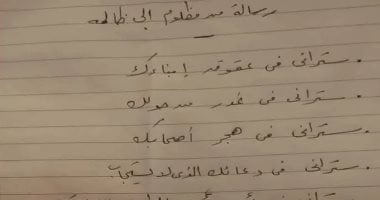 رسالة من مظلوم إلى ظالم
. ستراني في عقوق أبناءك
. ستراني في غدر من حولك
. ستراني في هجر أصحابك
. ستراني في دعائك الذي لا يستجاب
. ستراني في